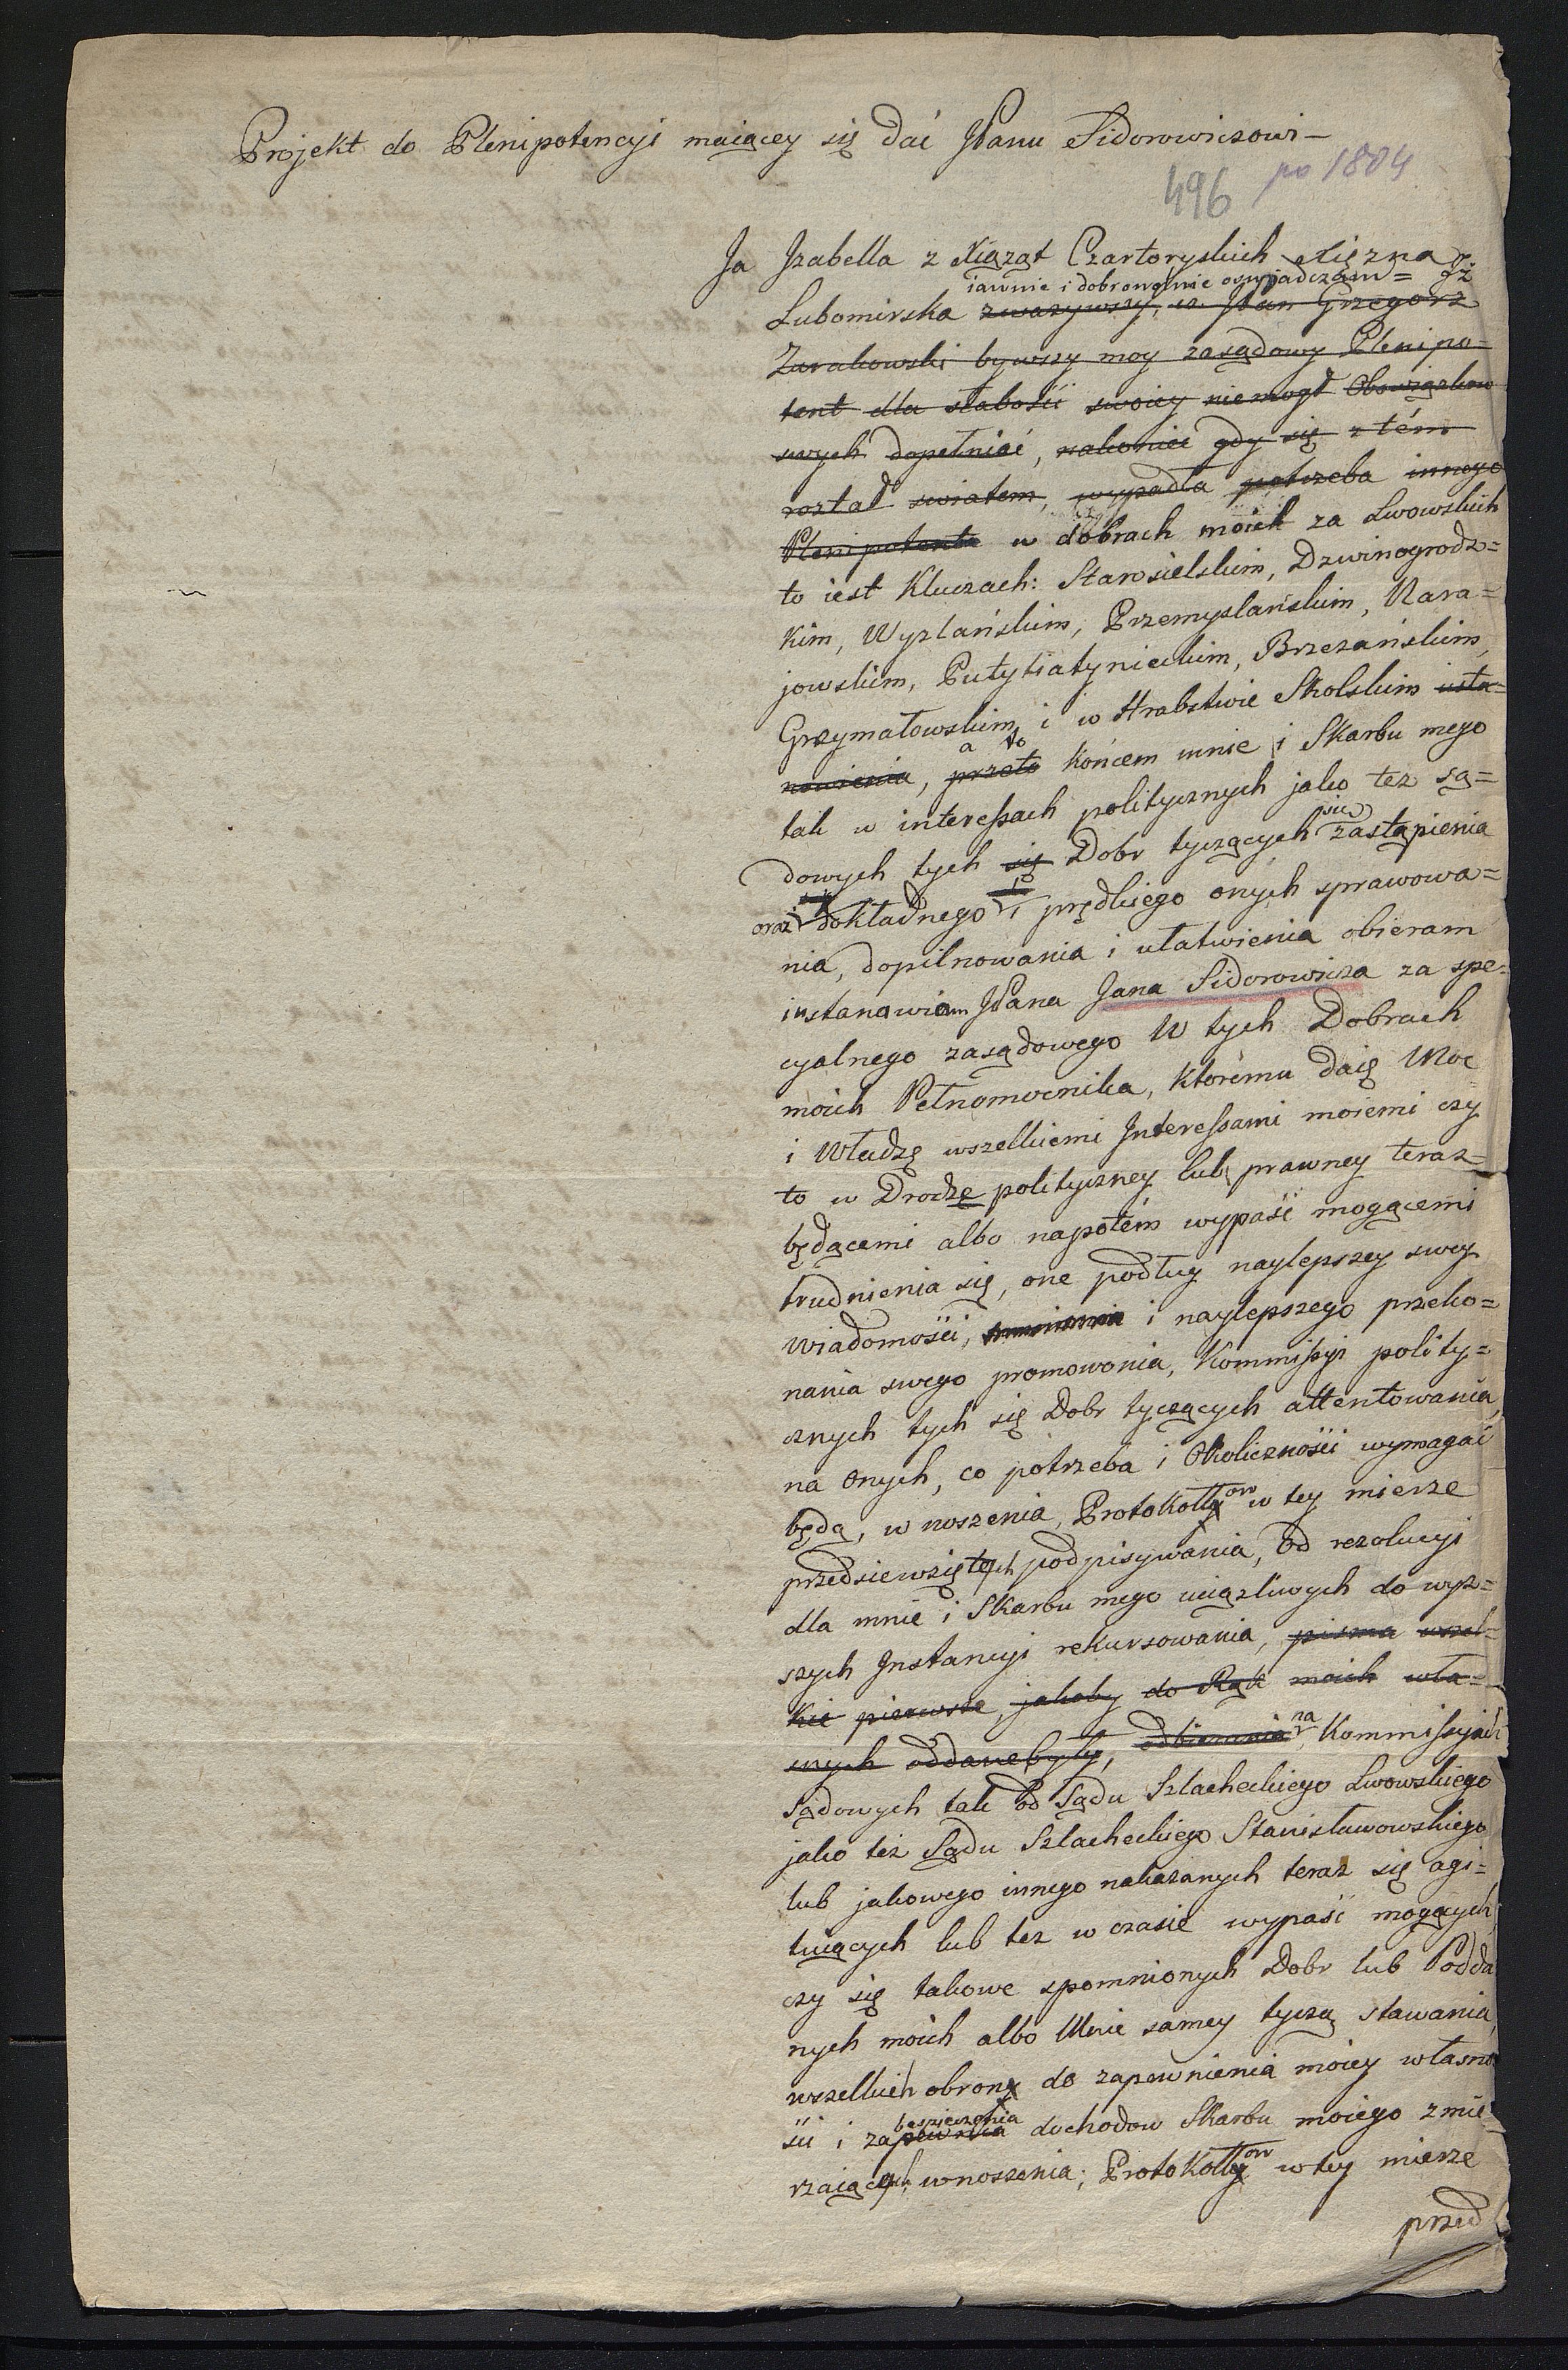 Projekt do Plenipotencyi maiącey się dać JPanu Sidorowiczowi –
po 1804
496
Ja Jzabella z Xiąząt Czartoryskich Xięzna
iawnie i dobrowolnie oswiadczam = Jż
Lubomirska zwazywszy, iz JPan Grzegorz
Zurakowski bywszy moy zasądowy Plenipo=
tent dla słabości swoiey niemogł Obowiązkow
swych dopełniać, nakoniec gdy się z tém
rostał swiatem, wypadła potrzeba innego
Plenipotenta w dobrach moich za Lwowskich
to iest Kluczach: Starosielskim, Dzwinogrodz=
kim, Wyzlańskim, Przemyslańskim, Nara=
jowskim, Putytiatynieckim, Brzezańskim,
Grzymałowskim, i w Hrabstwie Skolskim usta=
a to
nowienia, przeto Końcem mnie i Skarbu mego
tak w interessach politycznych jako tez są=
się
dowych tych się Dobr tyczących zastąpienia
oraz dokładnego i prędkiego onych sprawowa=
nia, dopilnowania i ułatwienia obieram
i ustanawiam JPana Jana Sidorowicza za spe=
cyalnego zasądowego W tych Dobrach
moich Pełnomocnika, Ktorému daię Moc
i Władzę wszelkiemi Jnteressami moiemi czy
to w Drodze polityczney lub prawney teraz
będącemi albo napotém wypaść mogącemi
trudnienia się, one podług naylepszey swey
wiadomości, i naylepszego przeko=
nania swego promowonia, Kommissyi polity=
cznych tych się Dobr tyczących attentowania,
na onych, co potrzeba i Okoliczności wymagać
będą, w noszenia, Protokołłow w tey mierze
przedsiewziętych podpisywania, od rezolucyi
dla mnie i Skarbu mego uciązliwych do wyz=
szych Jnstancyi rekursowania, pisma wszel=
kie pierwsze, jakoby do Rąk moich wła=
na
snych oddane były, odbierania Kommissyiach
Sądowych tak od Sądu Szlacheckiego Lwowskiego
jako też Sądu Szlacheckiego Stanisławowskiego
lub jakowego innego nakazanych teraz się agi=
tuiących lub tez w czasie wypaść mogących
czy się takowe spomnionych Dobr lub Podda
nych moich albo Mnie samey tyczą stawania,
wszelkich obron do zapewnienia moiey własno
bespieczenia
ści i zapewnia dochodow Skarbu moiego zmie=
rzaiących wnoszenia; Protokołłow w tey mierze
przed